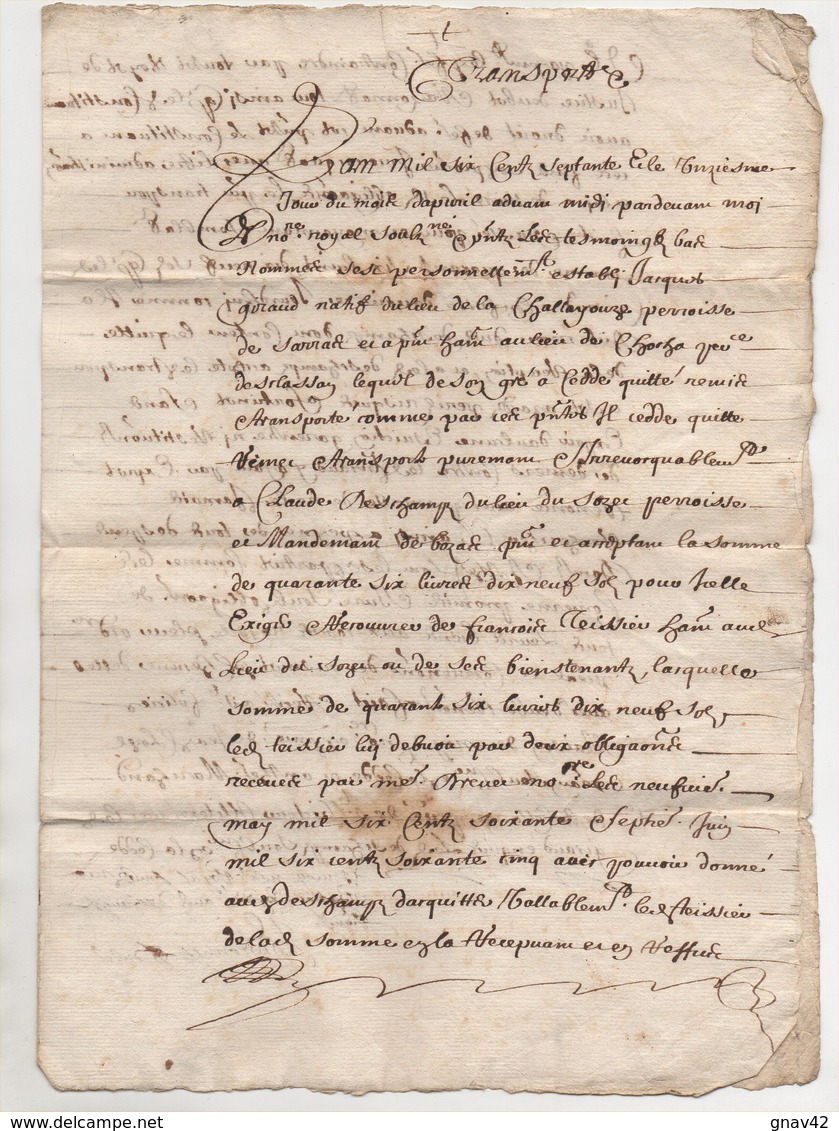 Transport
Lan mil six Centz septante & le unziesme
Jour du mois dapvril advam midi pardevam moi
nore royal soubzné & pntz Les tesmoingz bas
Nommes sest personnellemt establi Jacques
giraud natif du lieu de la Challayouze perroisse
de sarras et a pnt hant au lieu de Chocha
desclassan lequel de son gré a Cedde quitté remis
& transporté comme par ces pntes Il cedde quitte
remet & transporte puremam & Irrevocquablemt
a Claude Deschamp du lieu du sozet perroisse
et Mandemam de bozas pnt et acceptam la somme
de quarante six livres dix neuf solz pour Icelle
Exiger & recouvrer de francois Teissier hant aud
Lieu du sozet ou de ses bienstenantz, lacquelle
somme de quarant six livres dix neuf solz
led teissier luy debvoit par deux obligaons
receues par me Brever nore Les neufvie
may mil six Centz soixante & septie Juin
mil six centz soixante cinq avec pouvoir donné
aud deschamp dacquitter Vallablemt led teissier
de lad somme en la Recepvam et en reffus
delcampe.net
gnav42